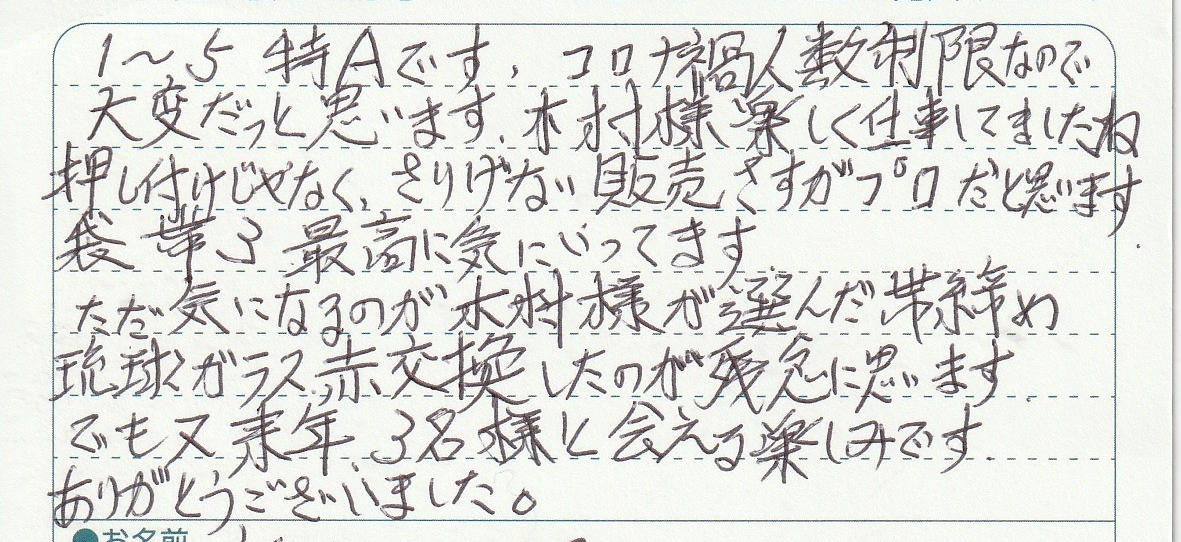 1～5 特Aです, コロナ禍人数制限なので
大変だっと思います. 木村様楽しく仕事してましたね
押し付けじゃなく, さりげない販売, さすがプロだと思います.
袋帯3 最高に気にいってます
ただ気になるのが木村様が選んだ帯締め
琉球ガラス, 赤交換したのが残念に思います.
でも又来年, 3名様と会える楽しみです.
ありがとうございました。
●お名前